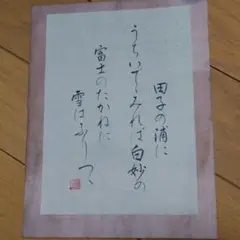 田子の浦に
うちいでゝみれば白妙の
富士のたかねに
雪はふりつゝ